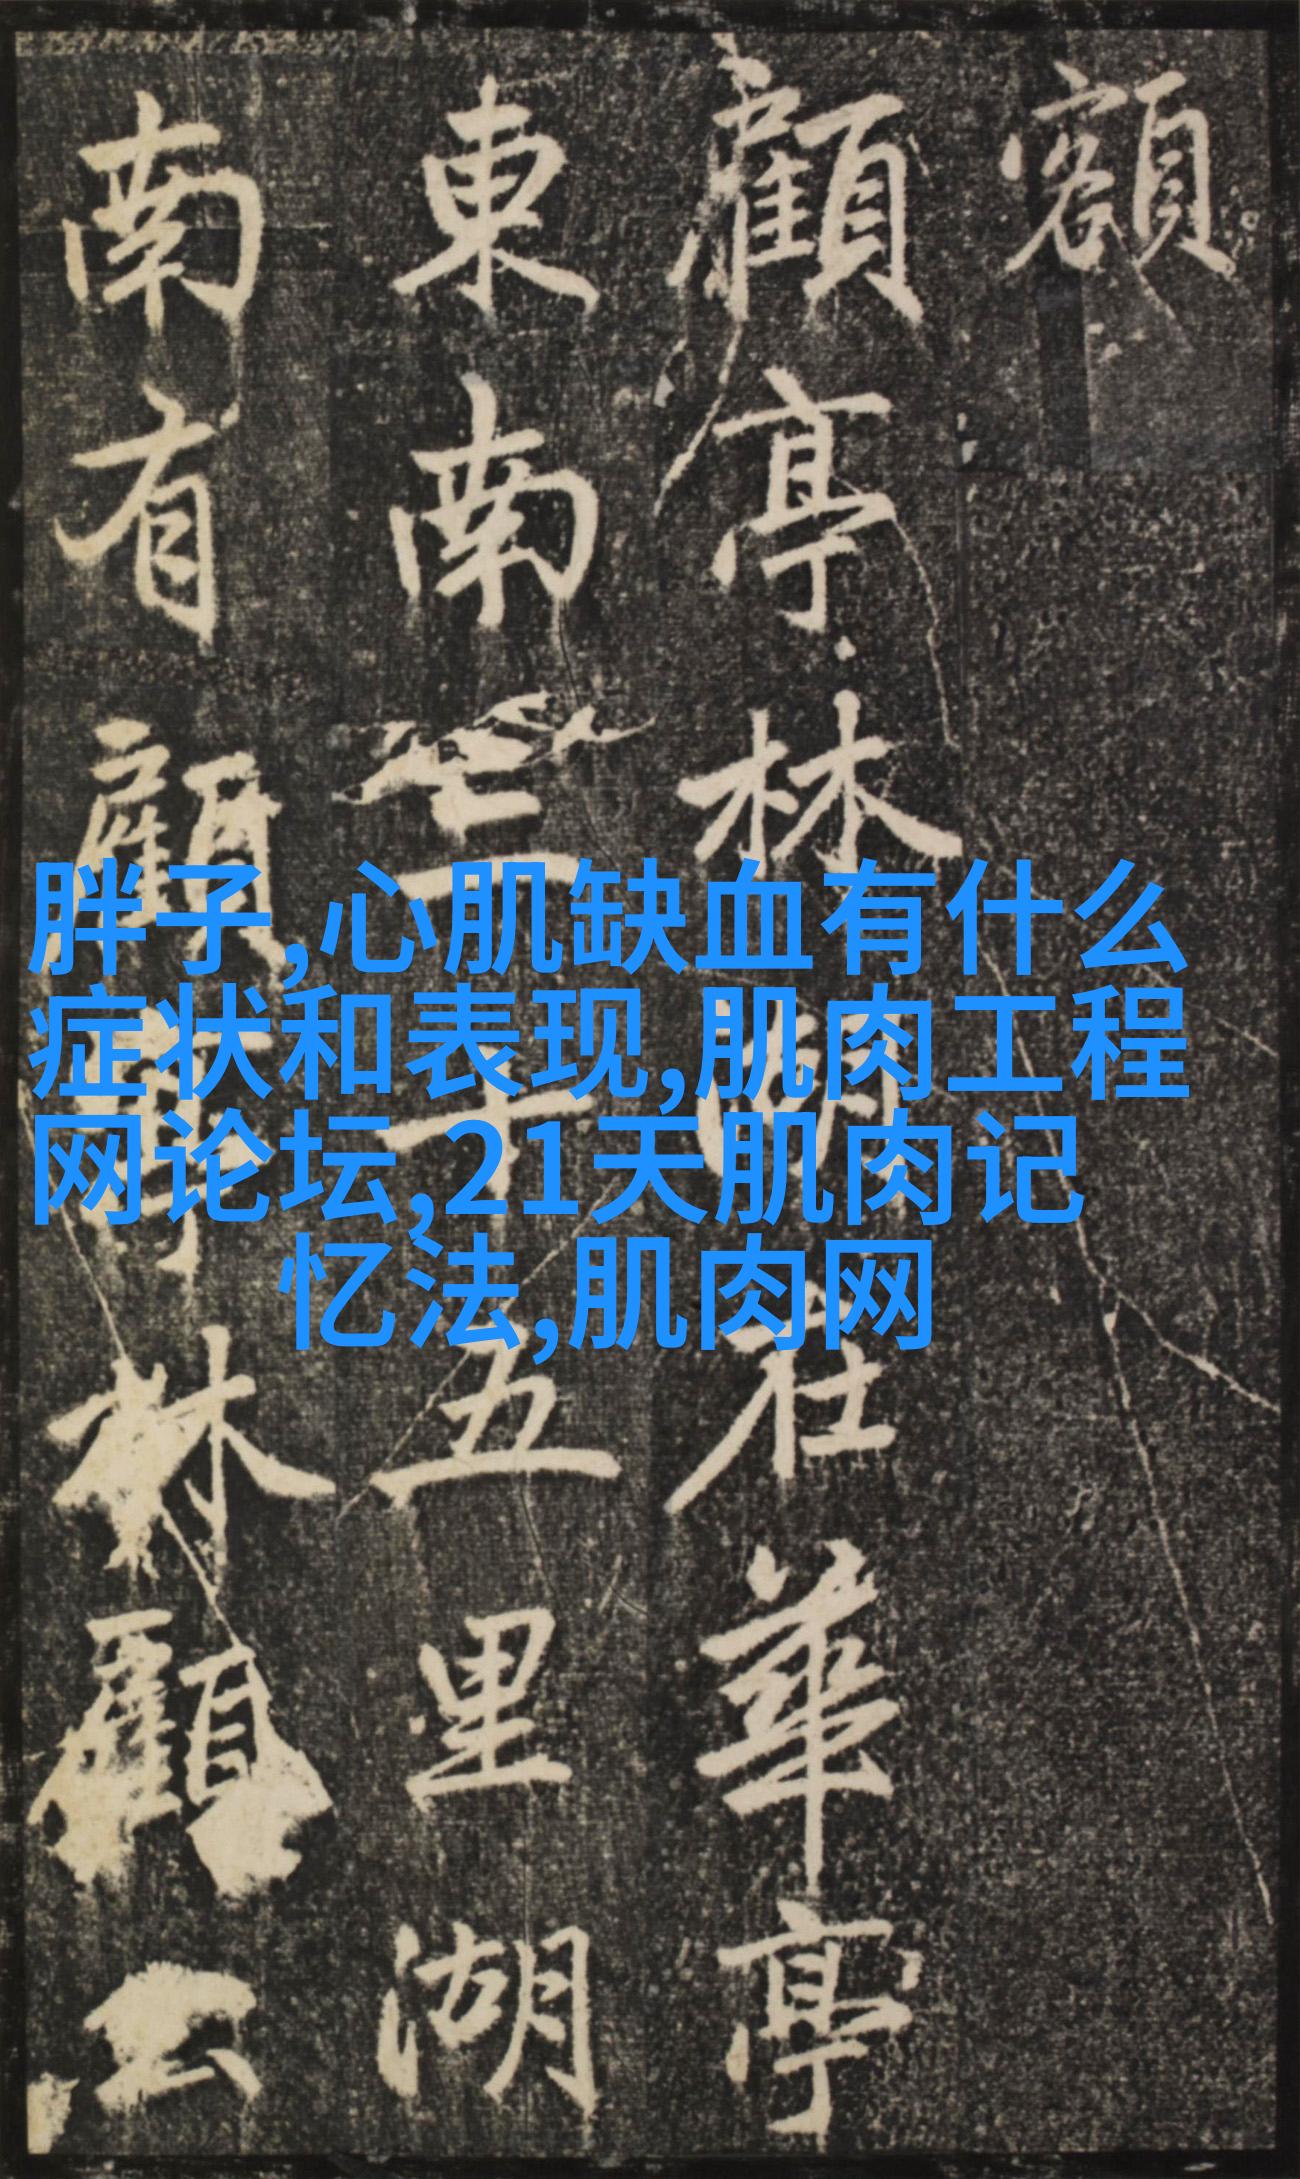 額
顧亭林湖在華亭
東南三十五里湖
南有顧亭林顧公
胖子,心肌缺血有什么
症状和表现,肌肉工程
网论坛,21天肌肉记
忆法,肌肉网